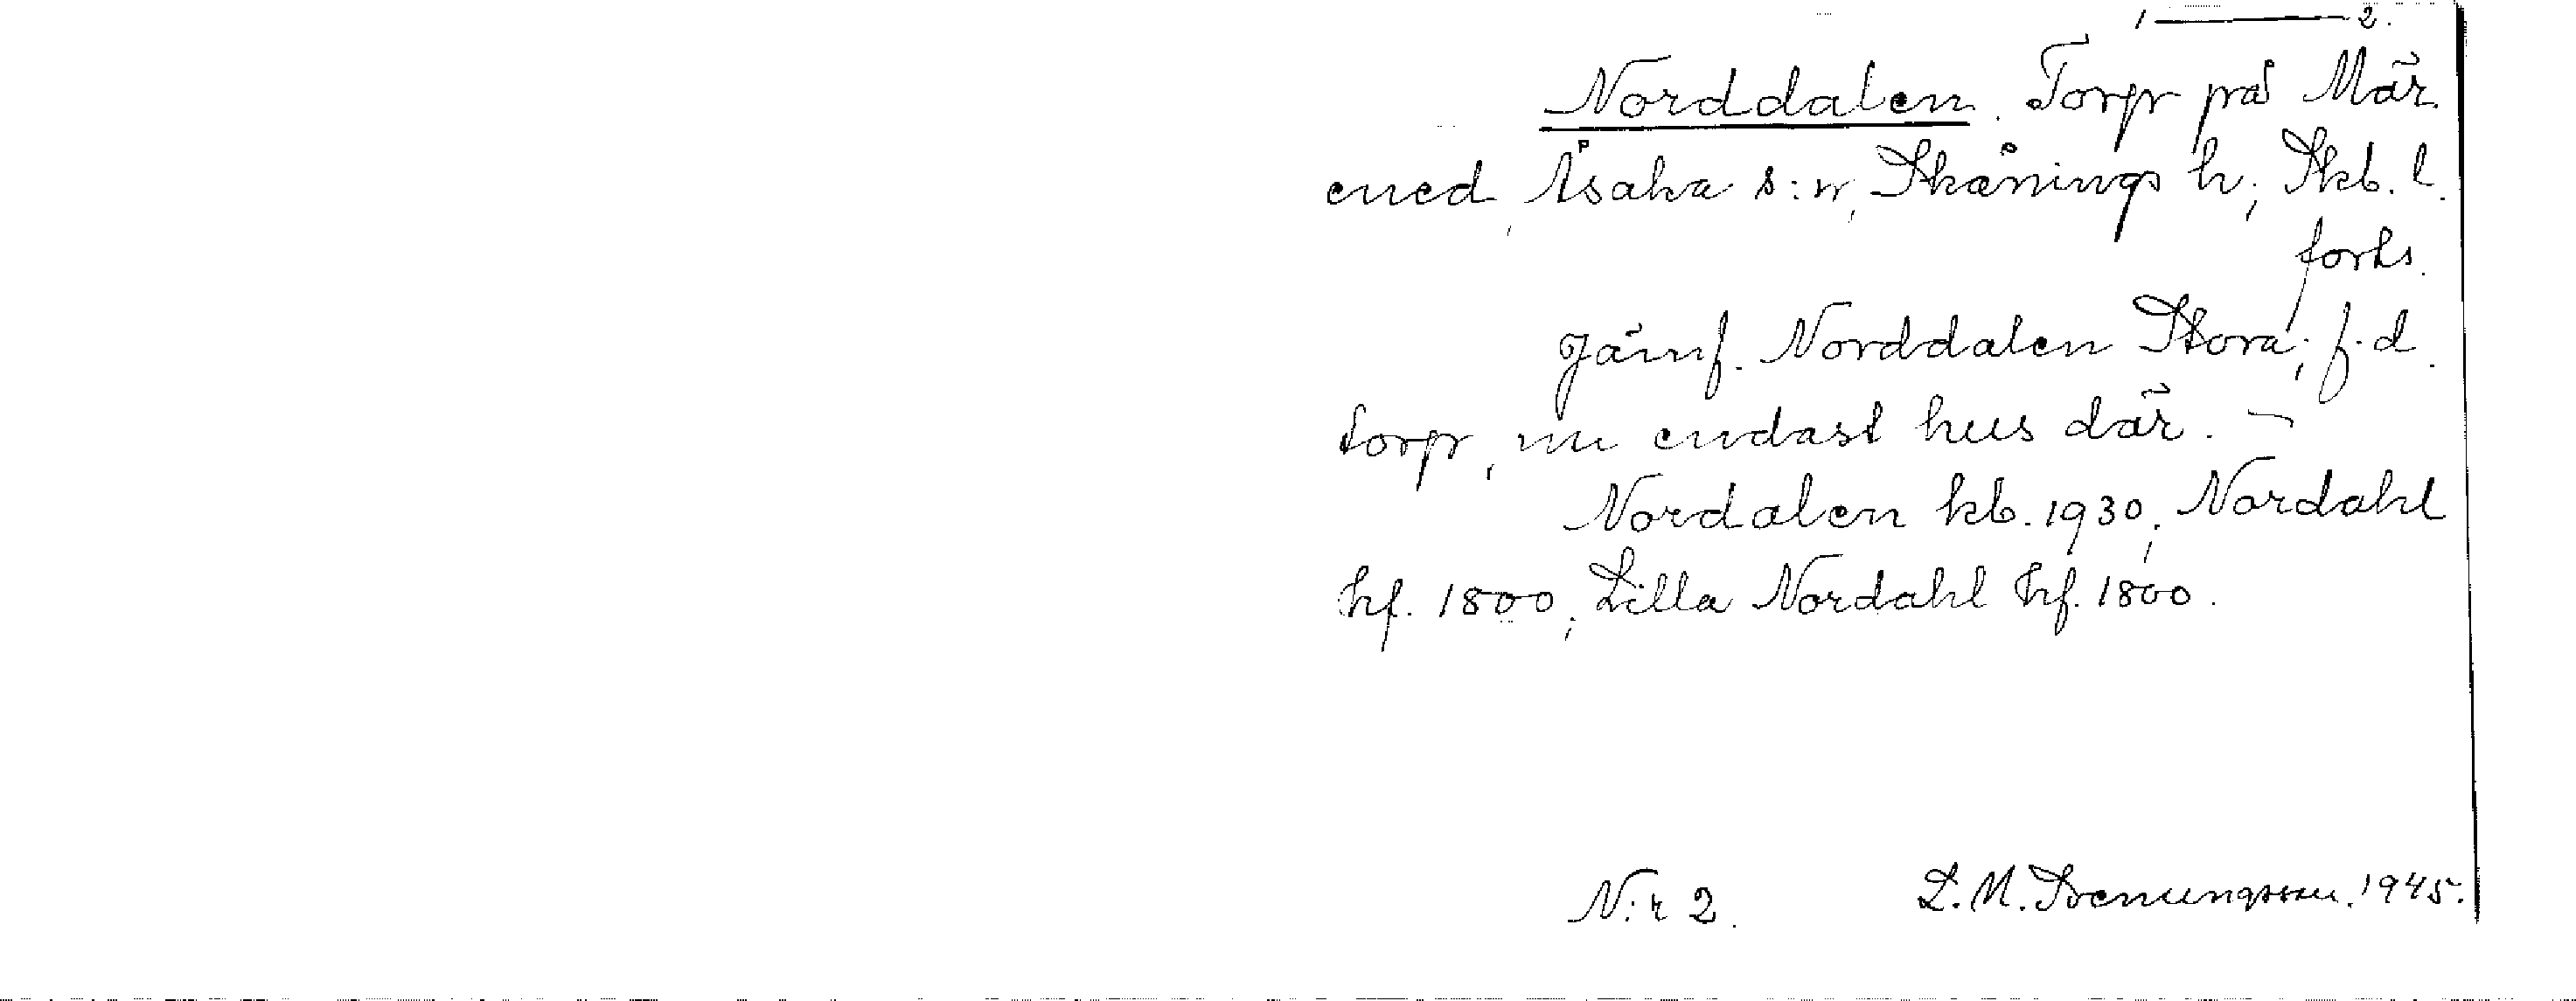 1 — 2.
Norddalen. Torp på Mär
ened, Åsaka s:n, Skånings h; Skb. l.
forts.
Jämf. Norddalen Stora; f. d.
torp, nu endast hus där. —
Nordalen kb. 1930; Nordahl
hf. 1800; Lilla Nordahl hf. 1800.
N:r 2. L. M. Svenungsson. 1945.